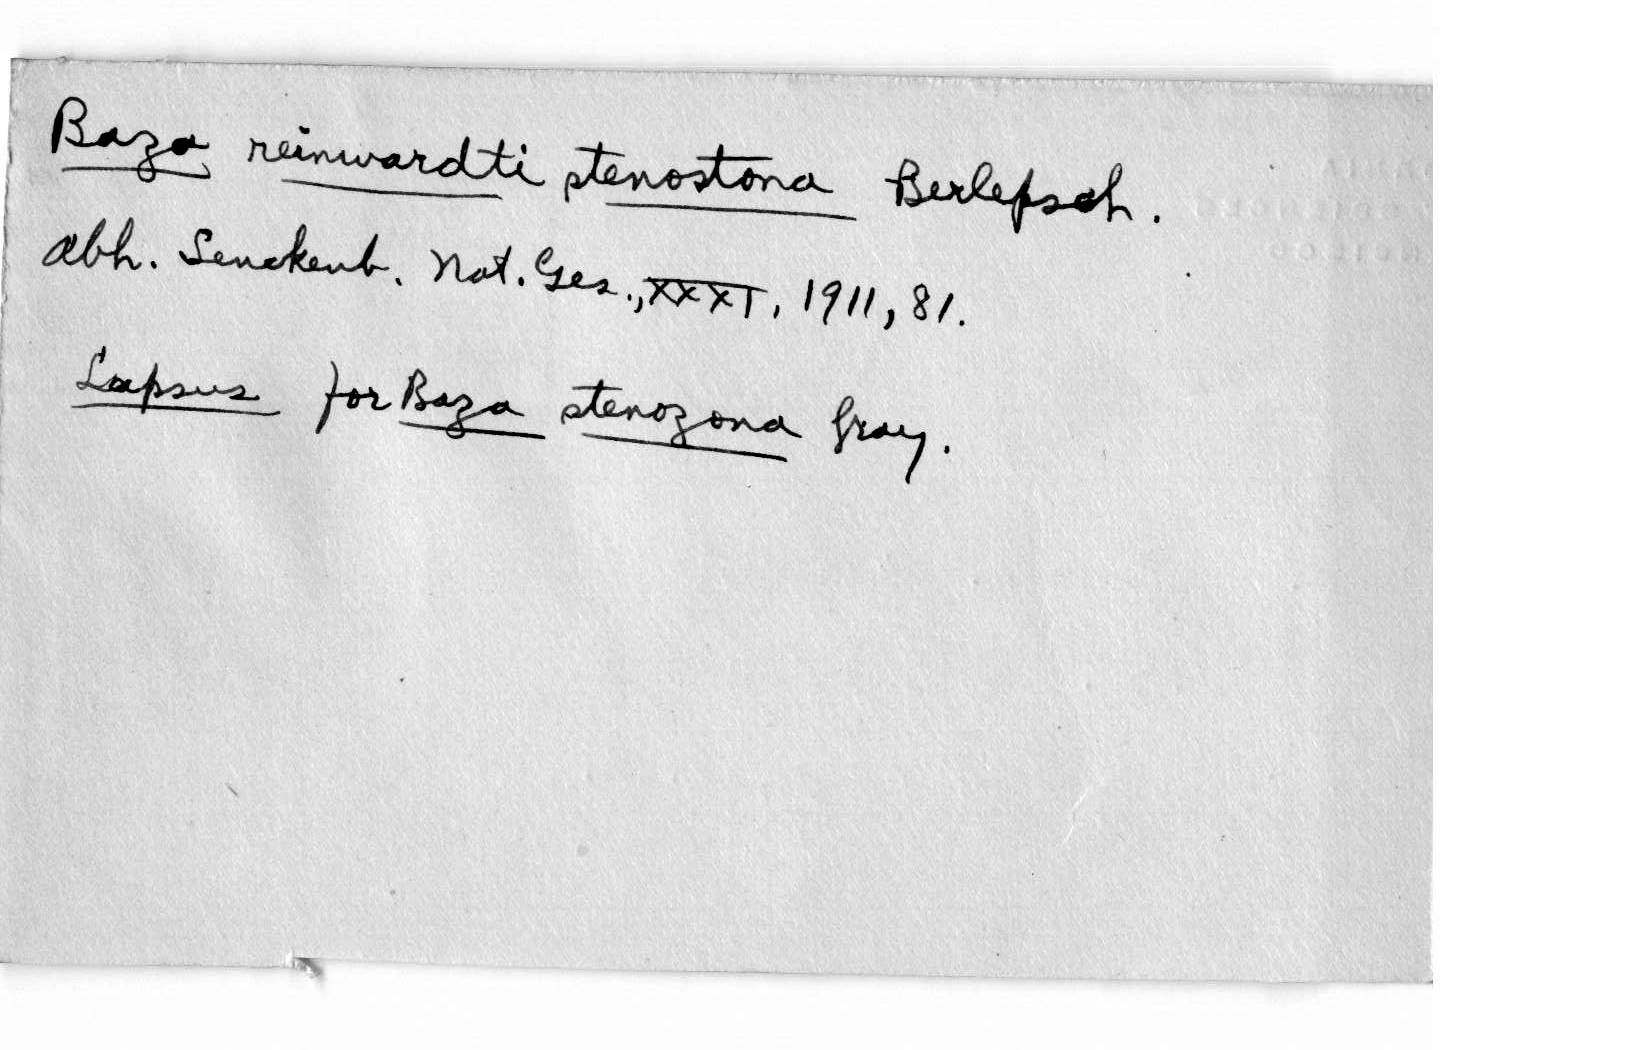 Baza reinwardti stenostona Berlepsch.
Abh. Senckenb. Nat. Ges., XXXI, 1911, 81.
Lapsus for Baza stenozona Gray.